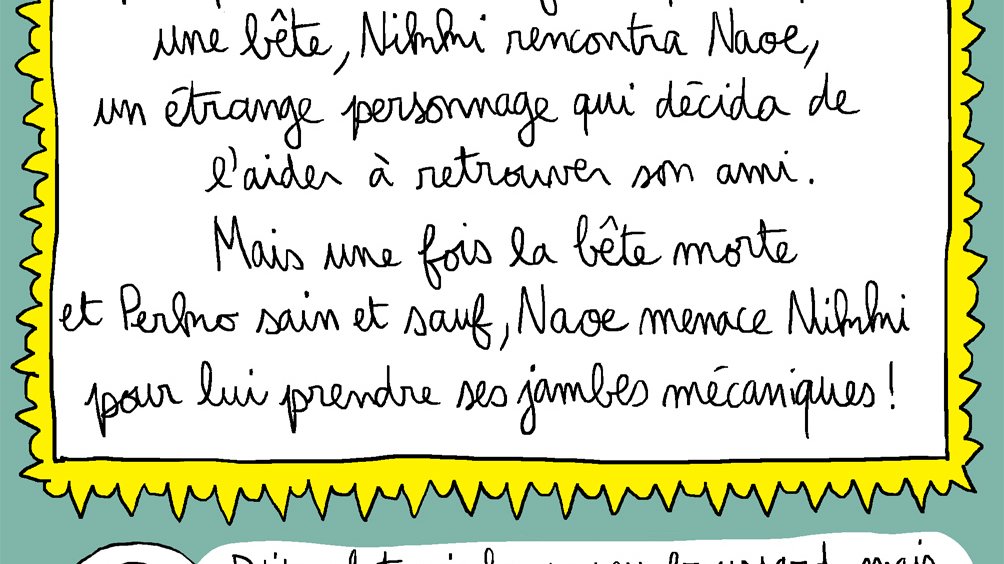 une bête, Nikki rencontra Naoe,
un étrange personnage qui décida de
l'aider à retrouver son ami.
Mais une fois la bête morte
et Perkno sain et sauf, Naoe menace Nikki
pour lui prendre ses jambes mécaniques !
mais